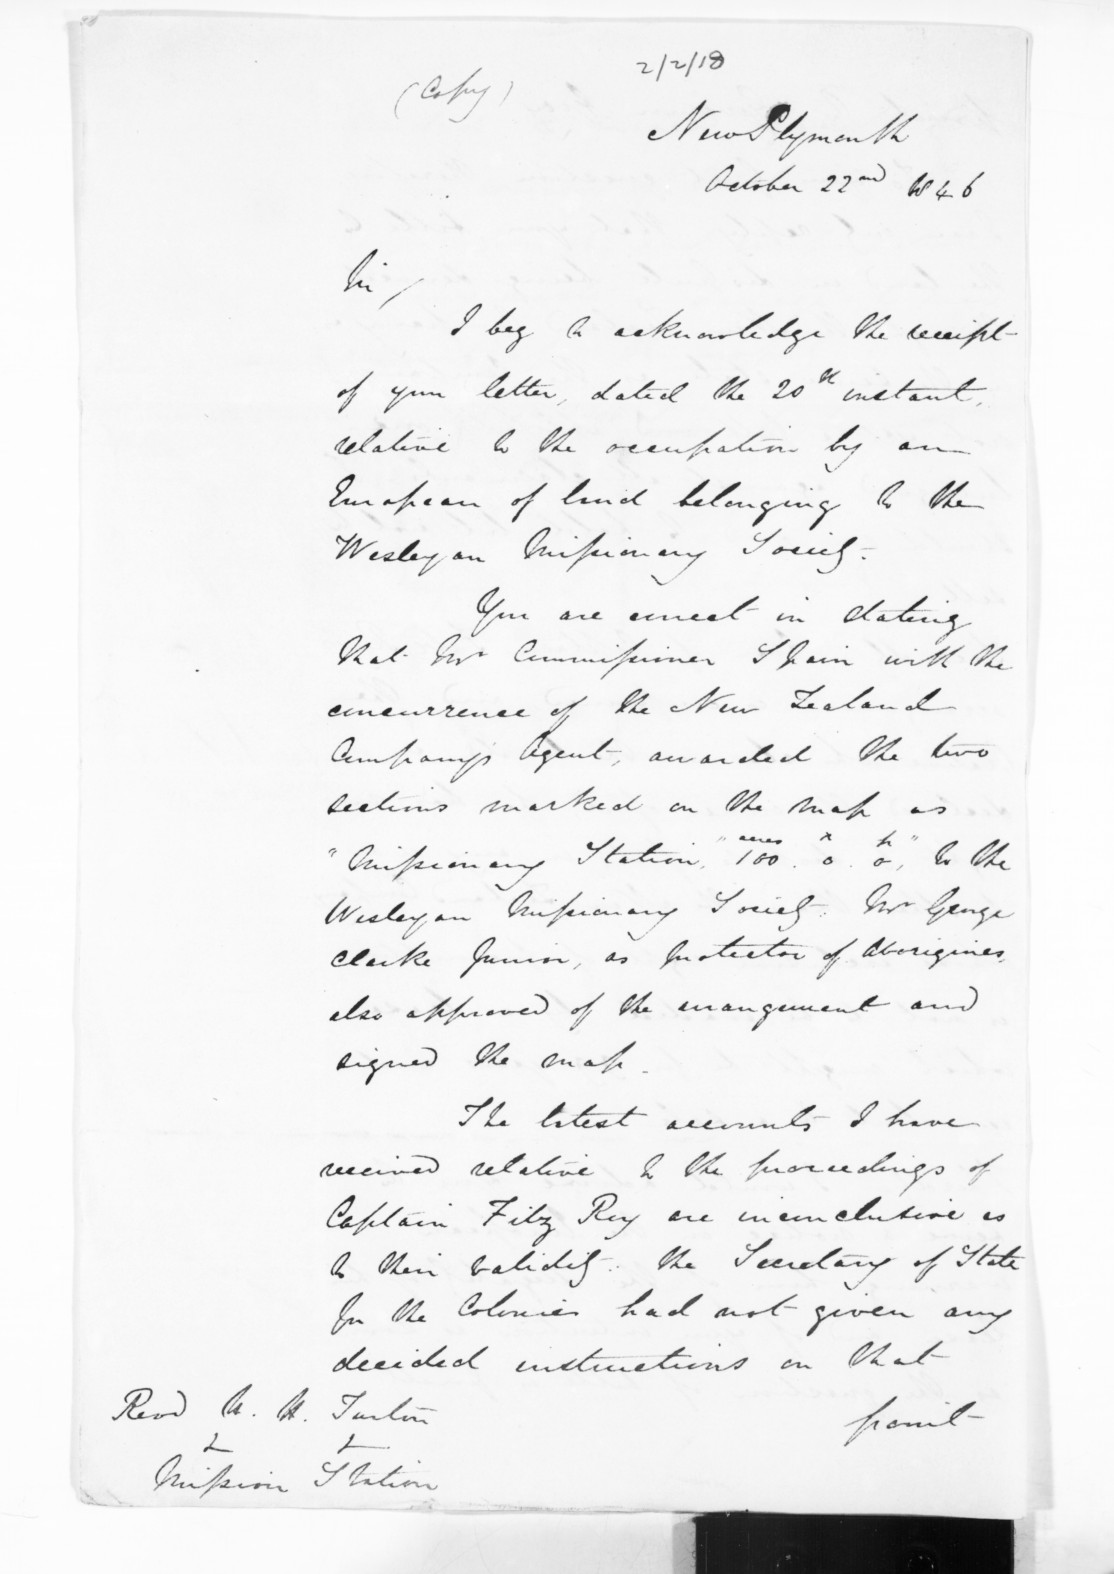 2/2/18
(Copy)
New Plymouth
October 22nd 1846
Sir,
I beg to acknowledge the receipt
of your letter, dated the 20th instant,
relative to the occupation by an
European of land belonging to the
Wesleyan Missionary Society.
You are correct in stating
that Mr Commissioner Spain with the
concurrence of the New Zealand
Company's Agent, awarded the two
sections marked on the map as
"Missionary Station," "100 acres. 0 r. 0 p", to the
Wesleyan Missionary Society. Mr George
Clarke Junior, as Protector of Aborigines,
also approved of the arrangement and
signed the map.
The latest accounts I have
received relative to the proceedings of
Captain Fitz Roy are inconclusive as
to their validity. The Secretary of State
for the Colonies had not given any
decided instructions on that
point
Revd H. H. Turton
&c &c
Mission Station